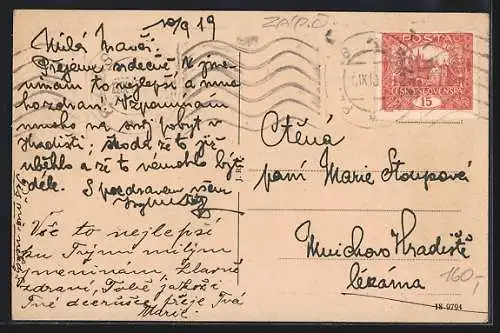 10/9 19
Milá
Přejeme srdečně k jme-
ninám to nejlepší a mno-
ho zdraví. Vzpomínám
mnoho na svůj pobyt v
Hradišti; škoda že to již
uběhlo a že to nemohlo být
déle. S pozdravem všem
Vše to nejlepší
ku Tvým milým
jmeninám, hlavně
zdraví, Tobě jakož i
Tvé dcerušce, přeje Tvá
ZAPO
POSTA
ČESKOSLOVENSKÁ
15
IX 19
Ctěná
paní Marie Stoupová
Mnichovo Hradiště
lékárna
160,-
18-9794